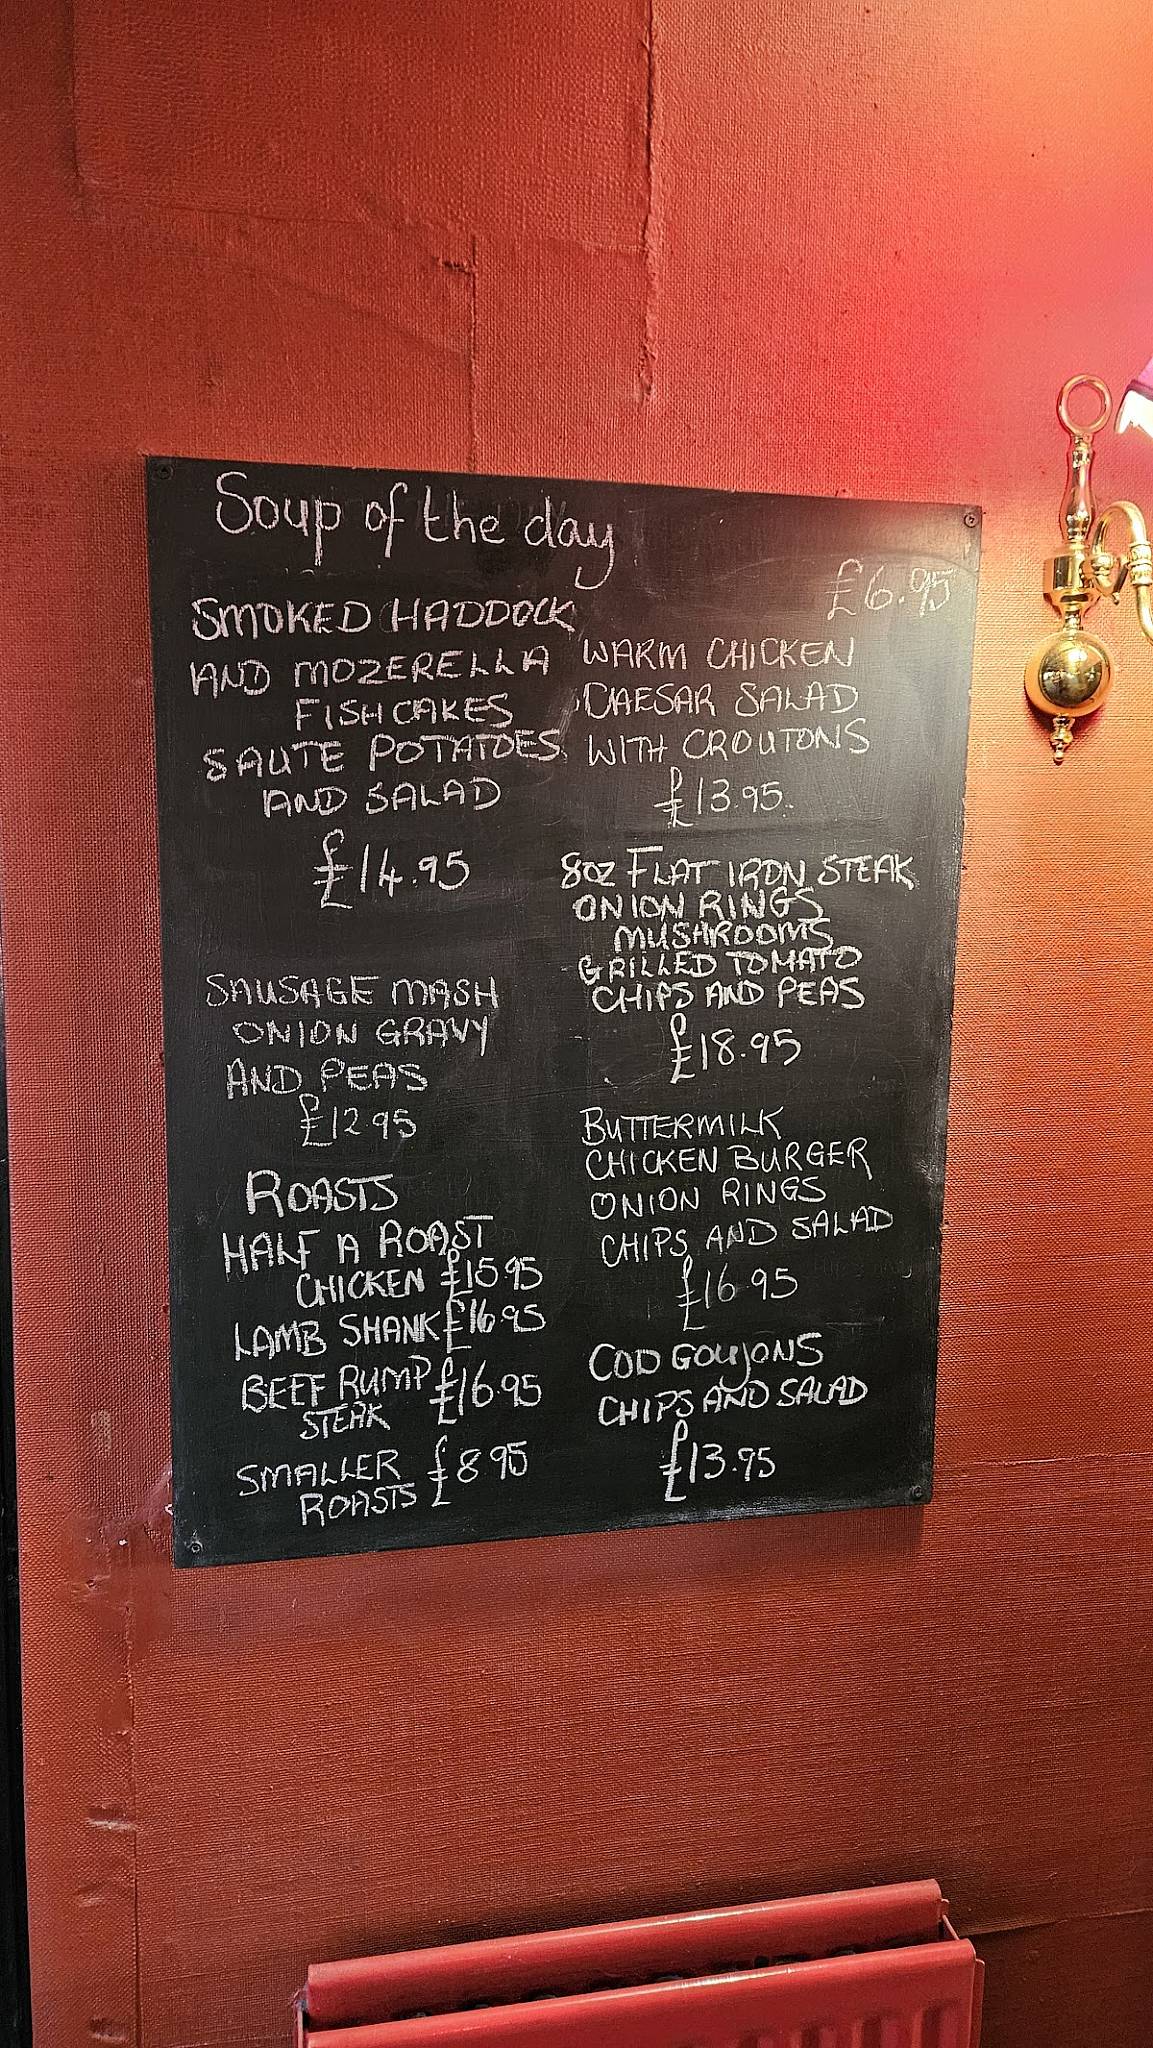 Soup of the day
£6.95
SMOKED HADDOCK
AND MOZERELLA
FISHCAKES
SAUTE POTATOES
AND SALAD
£14.95
SAUSAGE MASH
ONION GRAVY
AND PEAS
£12.95
ROASTS
HALF A ROAST
CHICKEN £15.95
LAMB SHANK £16.95
BEEF RUMP £16.95
STEAK
SMALLER £8.95
ROASTS
WARM CHICKEN
CAESAR SALAD
WITH CROUTONS
£13.95
8oz FLAT IRON STEAK
ONION RINGS
MUSHROOMS
GRILLED TOMATO
CHIPS AND PEAS
£18.95
BUTTERMILK
CHICKEN BURGER
ONION RINGS
CHIPS AND SALAD
£16.95
COD GOUJONS
CHIPS AND SALAD
£13.95